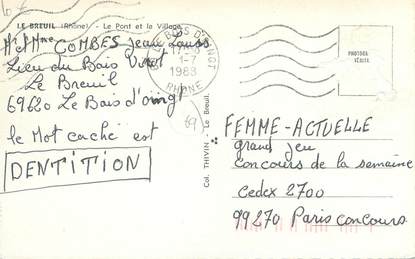 LE BREUIL (Rhône) - Le Pont et le Village
Mr et Mme COMBES Jean Louis
Lieu du Bois Vert
Le Breuil
69620 Le Bois d'oingt
le Mot caché est
DENTITION
BOIS D'OINGT
1-7
1988
RHONE
69
Col. THIVIN - Le Breuil.
FEMME-ACTUELLE
grand Jeu
concours de la semaine
Cedex 2700
99270 Paris concours